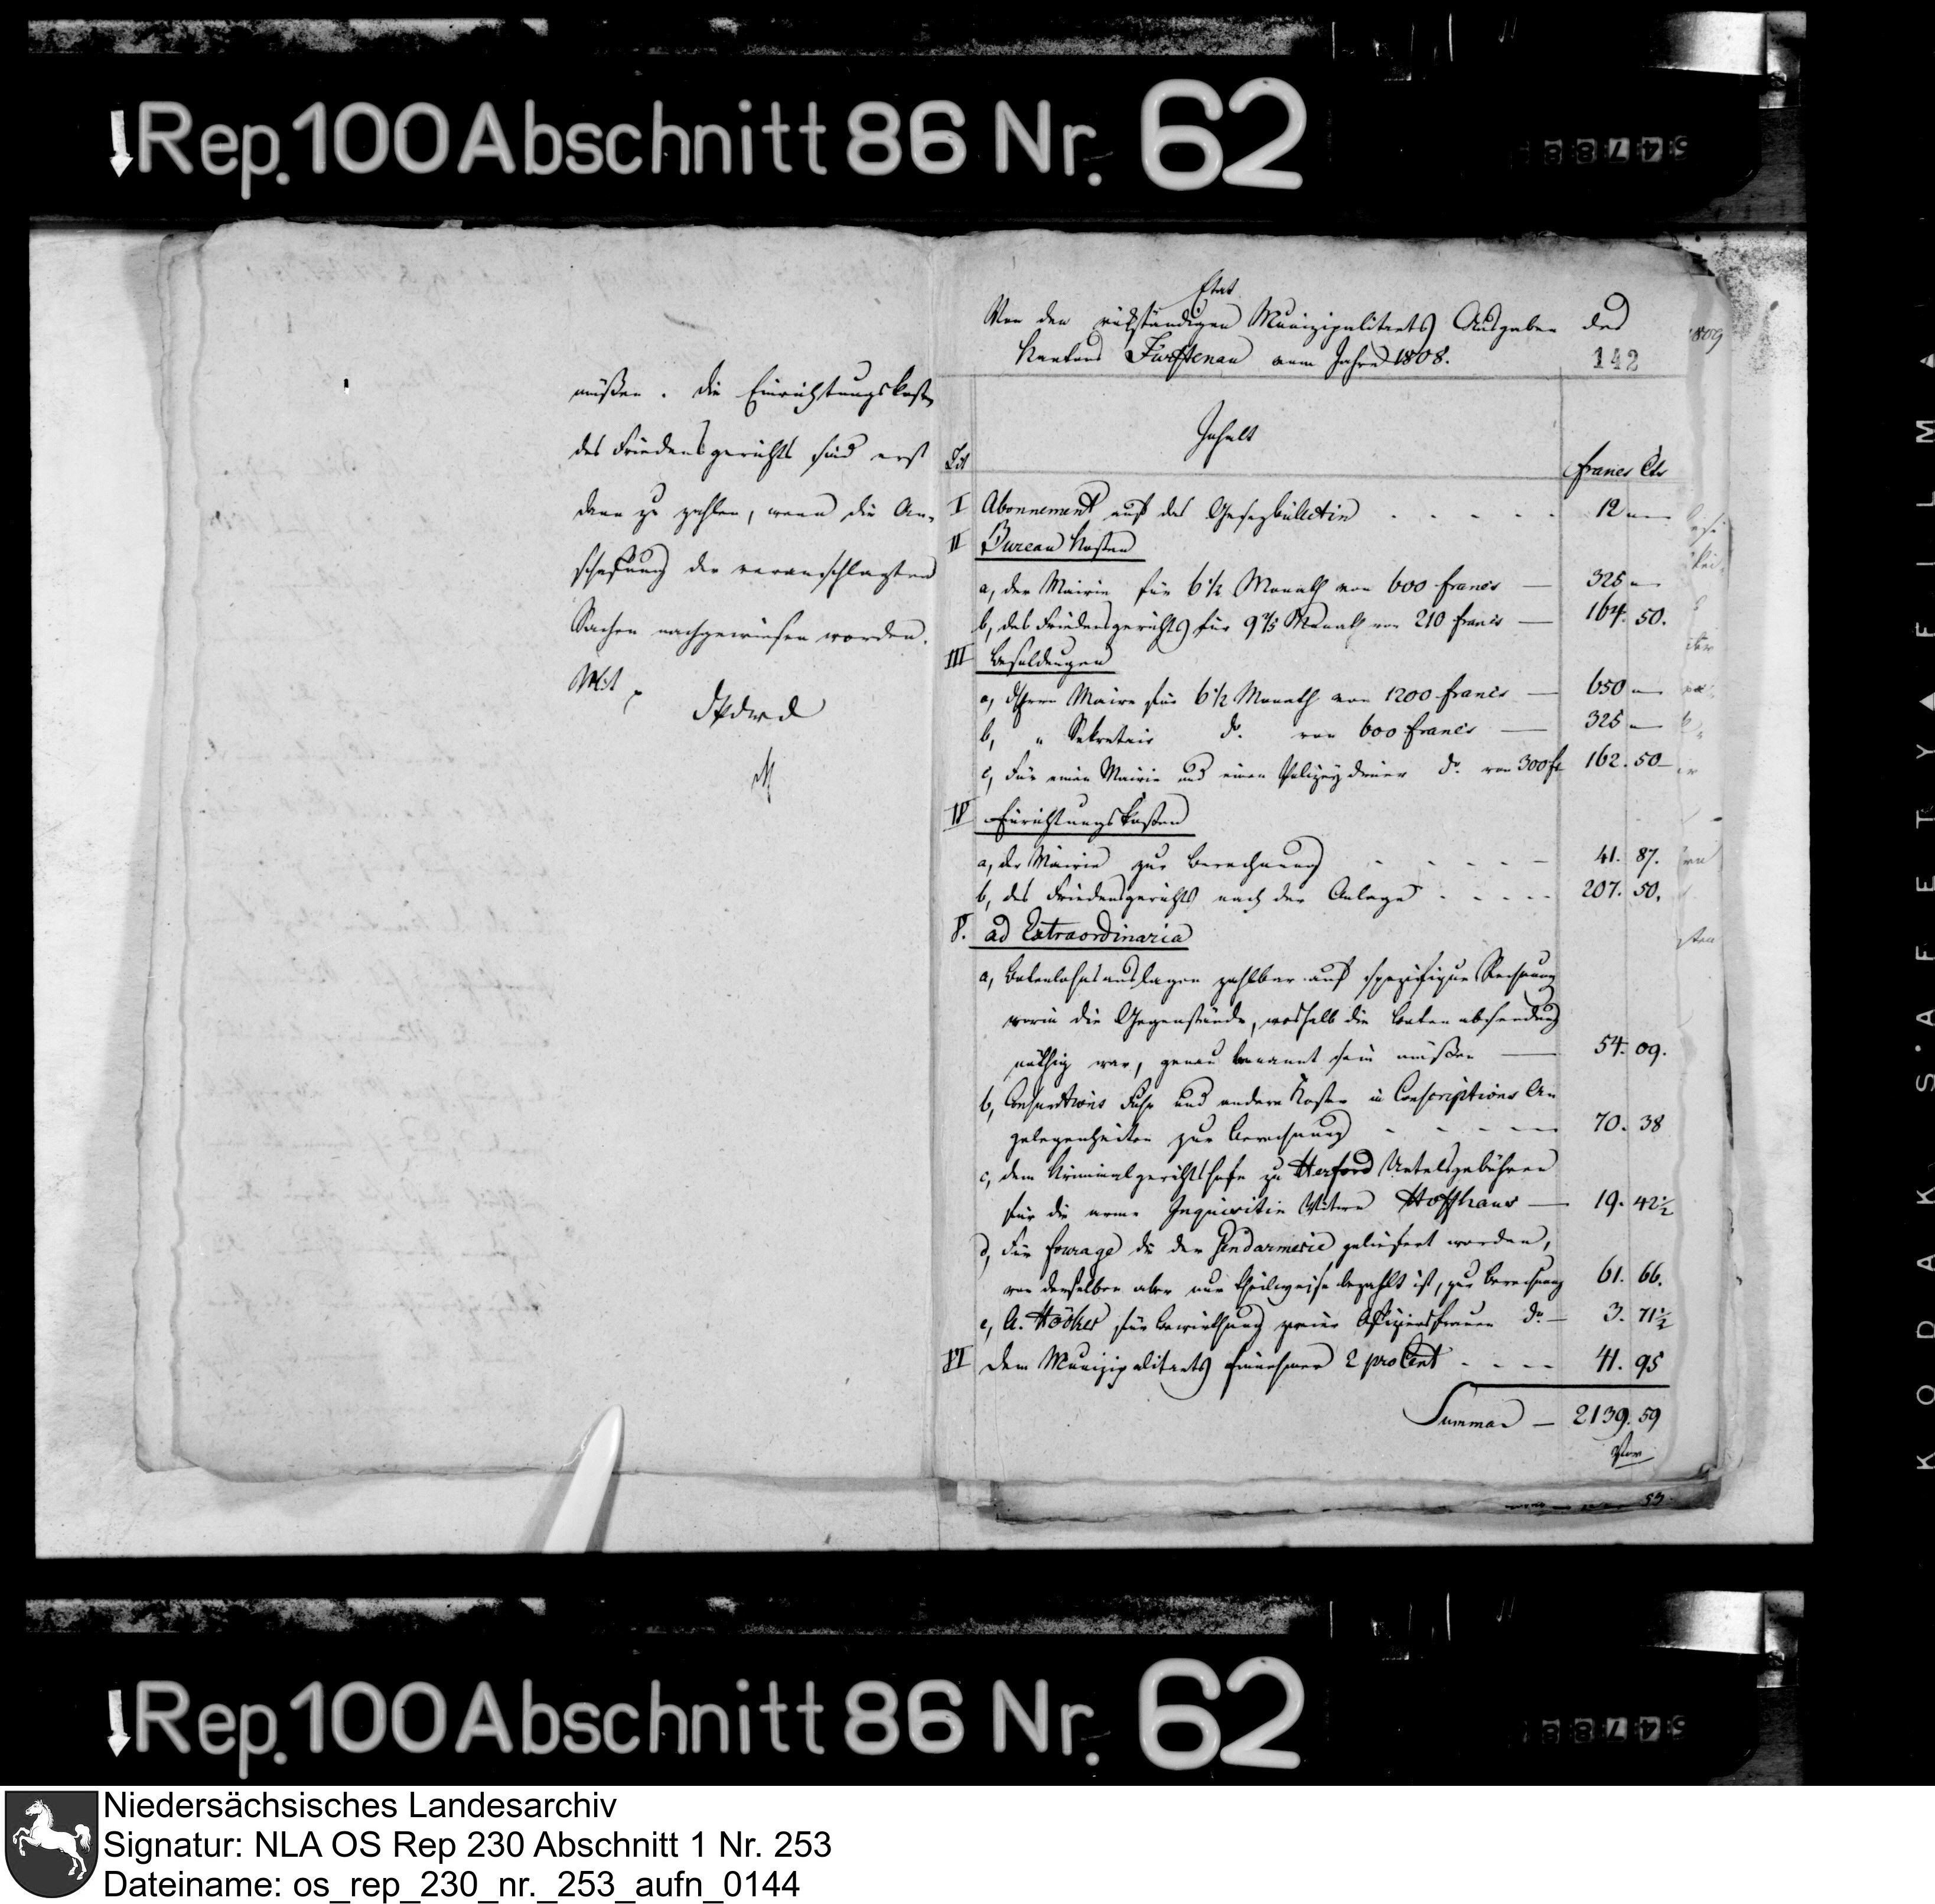 Rep. 100 Abschnitt 86 Nr. 62
54788
müßen. Die Einrichtungskosten
des Friedensgerichts sind erst
dann zu zahlen, wenn die An-
schafung der veranschlagten
Sachen nachgewiesen worden.
Mit
Etat
Von den rükständigen Munizipalitaets Ausgaben des
Kantons Fürstenau vom Jahre 1808.
142
1809
Inhalt
Lit
francs Cts
I Abonnement auf das Gesezbülletin - - - - - 12 —
II Bureau Kosten
a, der Mairie für 6 1/2 Monath von 600 francs — 325 —
b, des Friedensgerichts für 9 2/5 Monath von 210 francs — 164. 50.
III Besoldungen
a, dHerrn Maire für 6 1/2 Monath von 1200 francs — 650 —
b, " Sekretair do. von 600 francs — 325 —
c, Für einen Mairie und einen Polizeydiener do. von 300 fr 162. 50 —
IV Einrichtungskosten
a, der Mairie zur Berechnung - - - - 41. 87.
b, des Friedensgerichts nach der Anlage - - - - 207. 50.
V. ad Extraordinaria
a, Botenlohnsauslagen zahlbar auf spezifique Rechnung
worin die Gegenstände, weshalb die Boten absendung
nöthig war, genau benannt sein müßen — 54. 09.
b, Fuhr und andere Kosten in Conscriptions An
gelegenheiten zur Berechnung - - - 70. 38
c, dem Kriminalgerichtshofe zu Herford Urtelsgebühren
für die arme Inquisitin Witwe Hoffhaus — 19. 42 1/2
d, Für fourage die der Gendarmerie geliefert worden,
von derselben aber nur theilweise bezahlt ist, zur Berechnung 61. 66.
e, A. Höcker für Bewirthung zweier Offiziersfrauen do — 3. 71 1/2
VI Dem Munizipalitaets Einnehmer 2 pro Cent - - - - 41. 95
Summa — 2139. 59
Von
53
Rep. 100 Abschnitt 86 Nr. 62
54788
KODAK S·AFETY▲FILM▲
Niedersächsisches Landesarchiv
Signatur: NLA OS Rep 230 Abschnitt 1 Nr. 253
Dateiname: os_rep_230_nr._253_aufn_0144